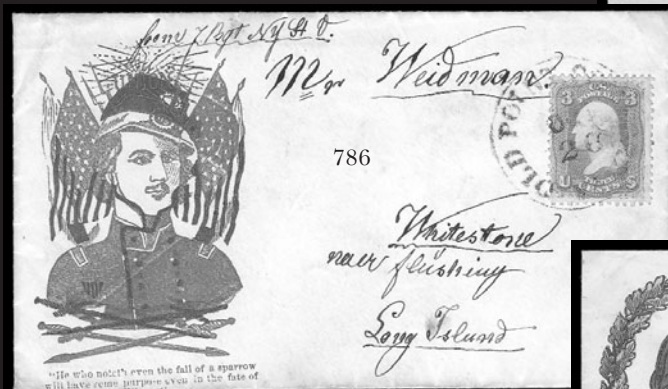 from 7 Regt NY St V.
Mr Weidman
3 3
OLD PO
786
U S
Whitestone
naer flushing
Long Island
"He who notet's even the fall of a sparrow
will have some purpose even in the fate of